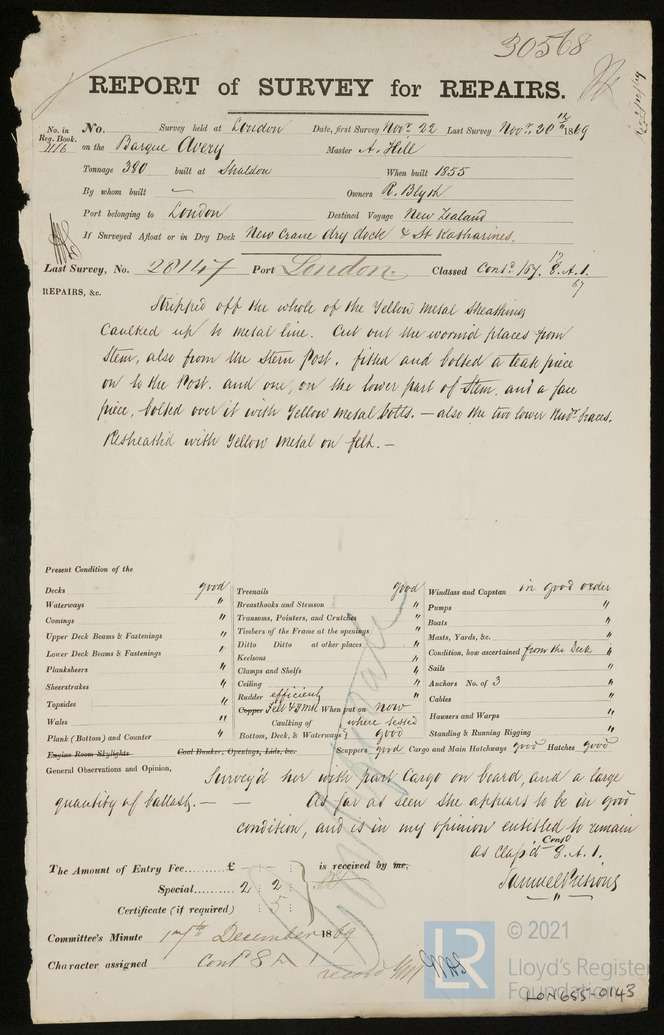 30568
REPORT of SURVEY for REPAIRS.
No. in Reg. Book. 1116
No. Survey held at London Date, first Survey Novr. 22 Last Survey Novr. 30th 1869
on the Barque Avery Master A. Hill
Tonnage 380 built at Shaldon When built 1855
By whom built — Owners R. Blyth
Port belonging to London Destined Voyage New Zealand
If Surveyed Afloat or in Dry Dock New Crane dry dock & St Katharines.
Last Survey, No. 28147 Port London. Classed Contd. 8.A.1.
67
REPAIRS, &c.
Stripped off the whole of the Yellow metal Sheathing
Caulked up to metal line. Cut out the worm'd places from
Stem, also from the Stern Post. fitted and bolted a teak piece
on to the Post. and one, on the lower part of Stem. and a face
piece, bolted over it with Yellow metal bolts. — also the two lower Rudr. braces.
Resheath'd with Yellow metal on felt. —
Present Condition of the
Decks good Treenails good Windlass and Capstan in good order
Waterways " Breasthooks and Stemson " Pumps "
Comings " Transoms, Pointers, and Crutches " Boats "
Upper Deck Beams & Fastenings " Timbers of the Frame at the openings " Masts, Yards, &c. "
Lower Deck Beams & Fastenings " Ditto Ditto at other places " Condition, how ascertained from the Deck
Planksheers " Keelsons " Sails "
Sheerstrakes " Clamps and Shelfs " Anchors No. of 3 "
Topsides " Ceiling " Cables "
Wales " Rudder efficient Hawsers and Warps "
Copper Felt & YM When put on now
Caulking of Bottom, Deck, & Waterways where tested good
Plank (Bottom) and Counter " Standing & Running Rigging "
Engine Room Skylights Coal Bunker, Openings, Lids, &c. Scuppers good Cargo and Main Hatchways good Hatches good
General Observations and Opinion,
Survey'd her with part Cargo on board, and a large
quantity of ballast. — — As far as seen she appears to be in good
condition, and is in my opinion entitled to remain
as Class'd Contd 8.A.1.
The Amount of Entry Fee......... £ : : is received by me,
Special......... 2 : 2 :
Certificate (if required) : 5 :
Samuel Pressions
Committee's Minute 17th December 1869
Character assigned Contd 8 A 1
record YM
© 2021
LR
Lloyd's Register
Foundation
LON655-0143